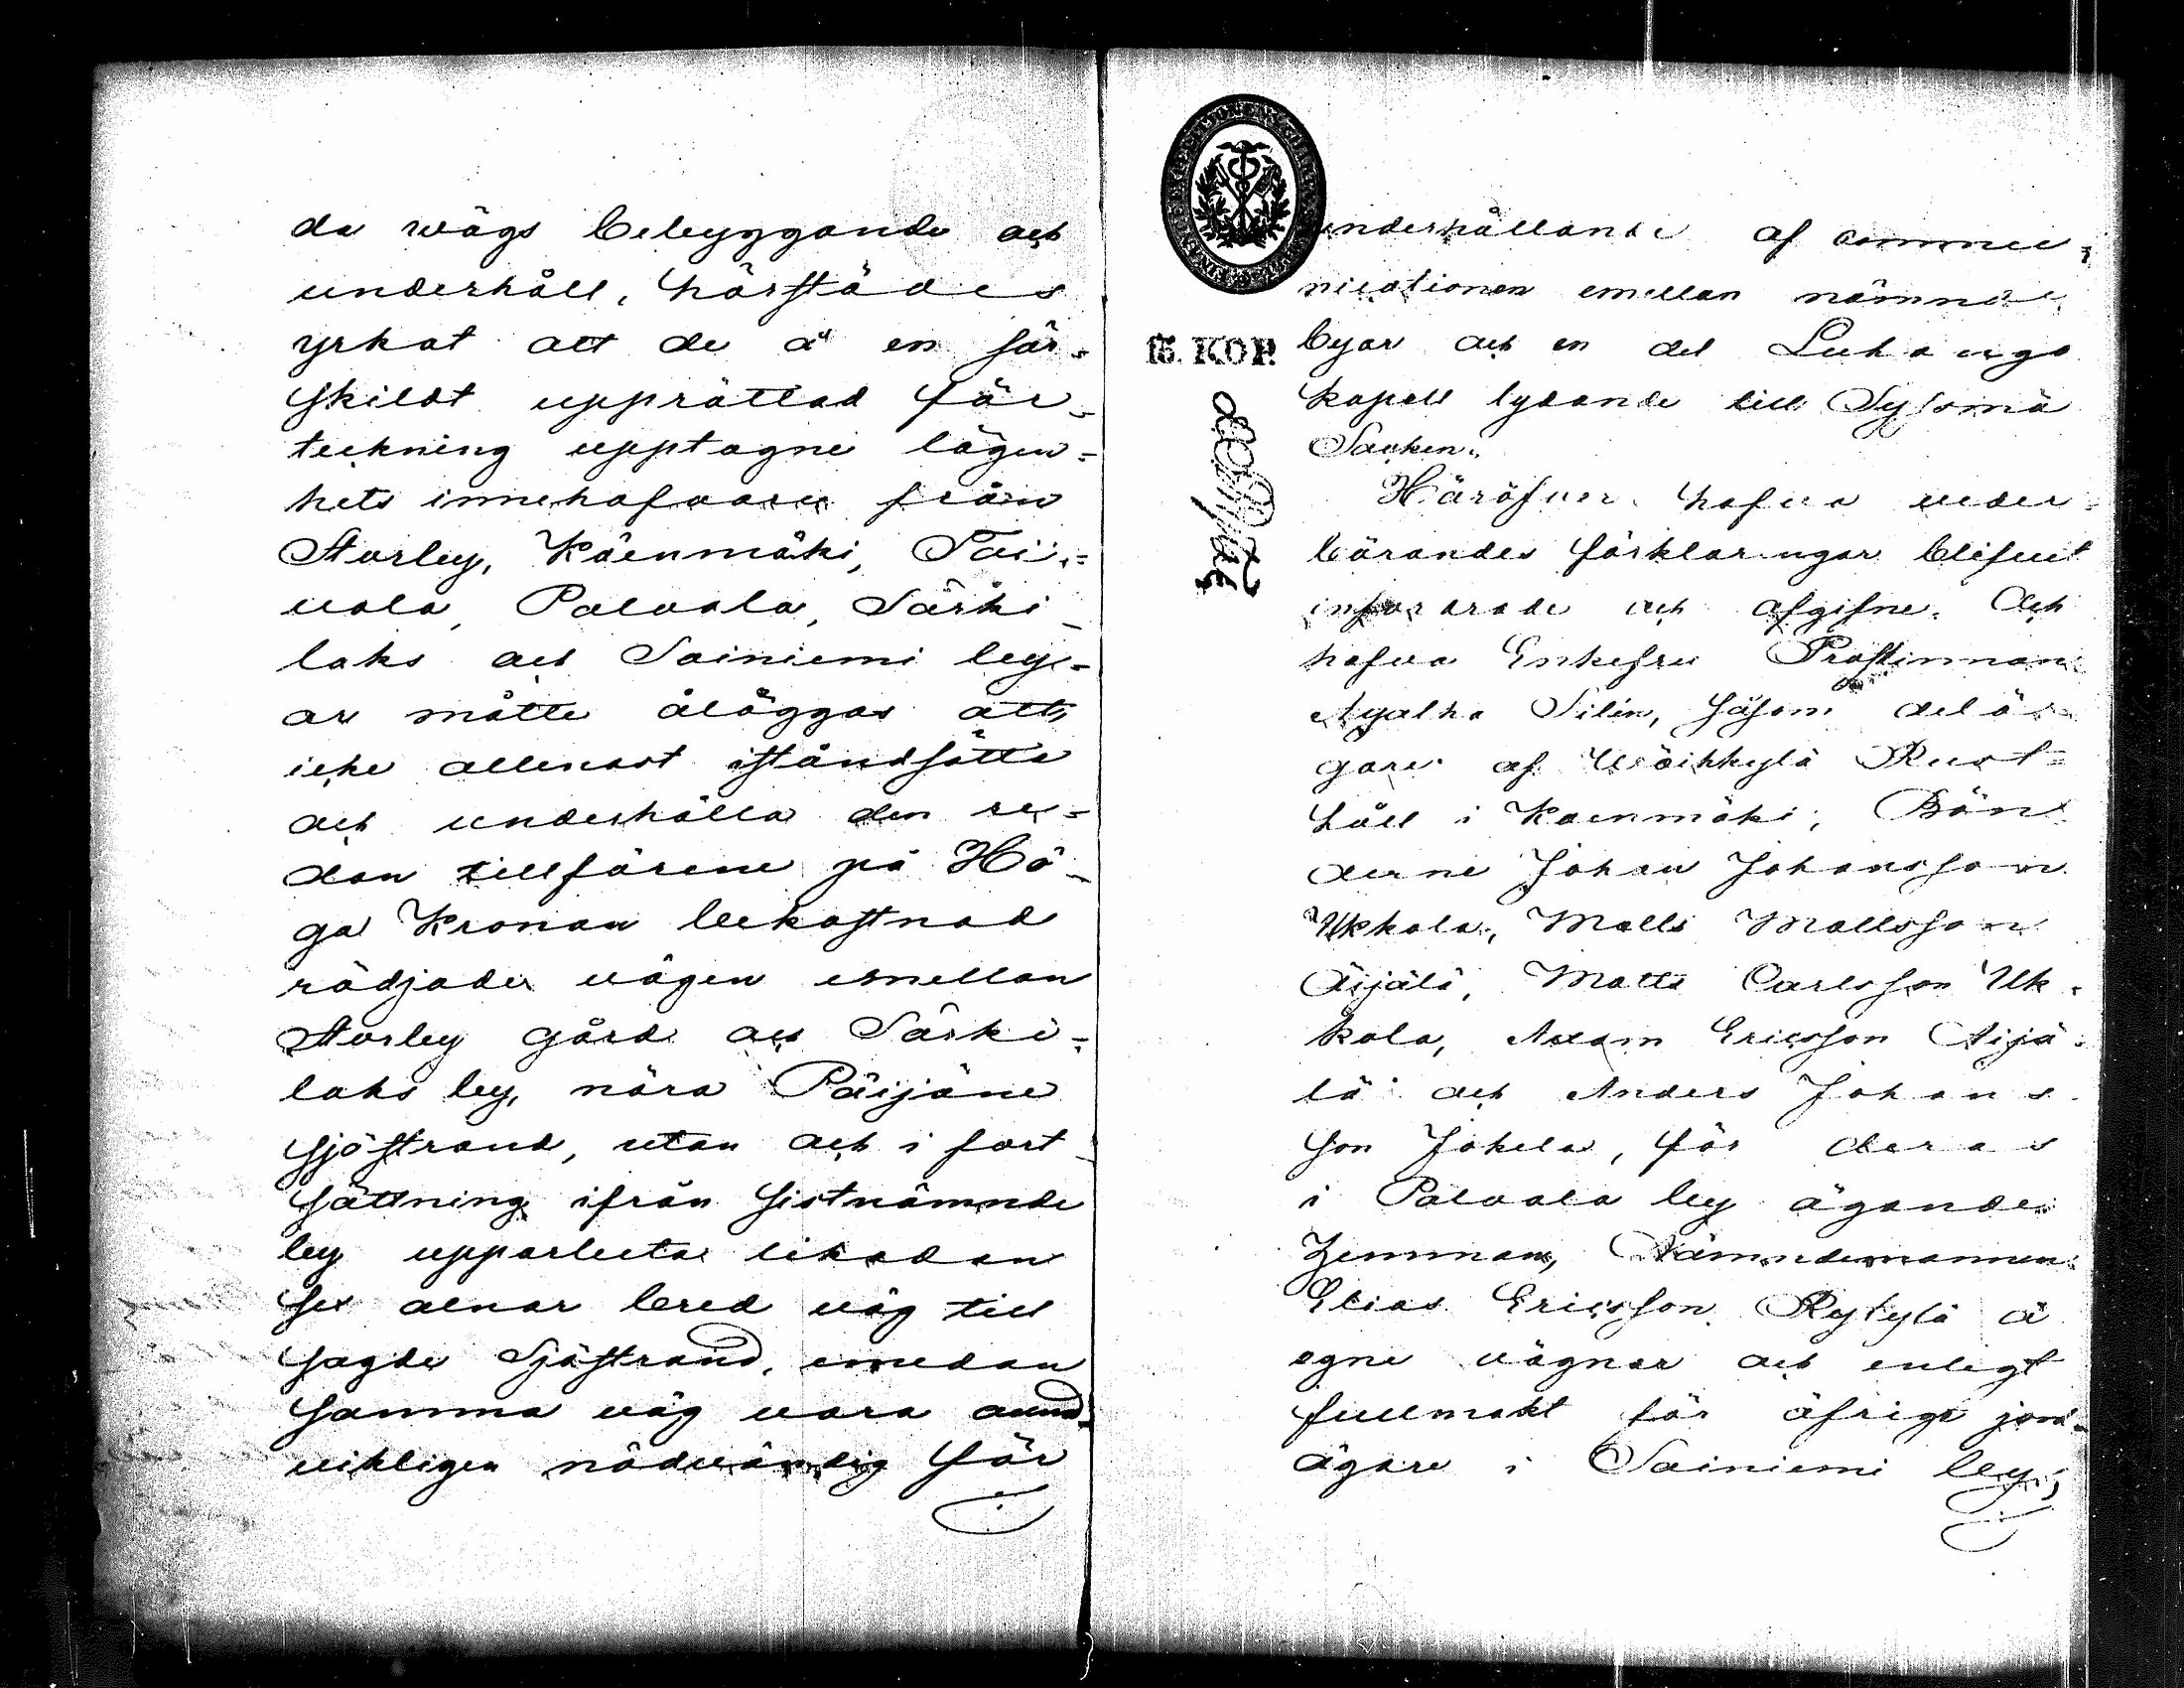 da wägs bebyggande och
underhåll, härstädes
yrkat att de å en sär-
skildt upprättad för-
teckning upptagne lägen-
hets innehafvare från
Storby, Käenmäki, Tai-
vala, Palvala, Särki-
laks och Sainiemi by-
ar måtte åläggas att,
icke allenast iståndsätta
och underhålla den re-
dan tillförene på Hö-
ga Kronan bekostnad
rödjade vägen emellan
Storby gård och Särki-
laks by, nära Päijäne
sjöstrand, utan och i fort-
sättning ifrån sistnämnde
by upparbeta likadan
sex alnar bred väg till
sagde Sjöstrand, emedan
samma väg vore ound-
vikligen nödvändig för
underhållande af commu-
nicationen emellan nämnde
byar och en del Luhango
kapell lydande till Sysmä
Socken.
15. KOP.
Häröfver hafva veder-
börandes förklaringar blifvit
infordrade och afgifne. Och
hafva Enkefru Prostinnan
Agatha Silèn, såsom delä-
gare af Wäihkylä Rust-
håll i Käenmäki, Bön-
derne Johan Johansson
Ukkola, Matts Mattsson
Äijälä, Matts Carlsson Uk-
kola, Adam Ericsson Äijä-
lä och Anders Johans-
son Jokela, för deras
i Palvala by ägande
Hemman, Nämndemannen
Elias Ericsson Rytylä å
egne vägnar och enligt
fullmakt för öfrige jord-
ägare i Sainiemi by,